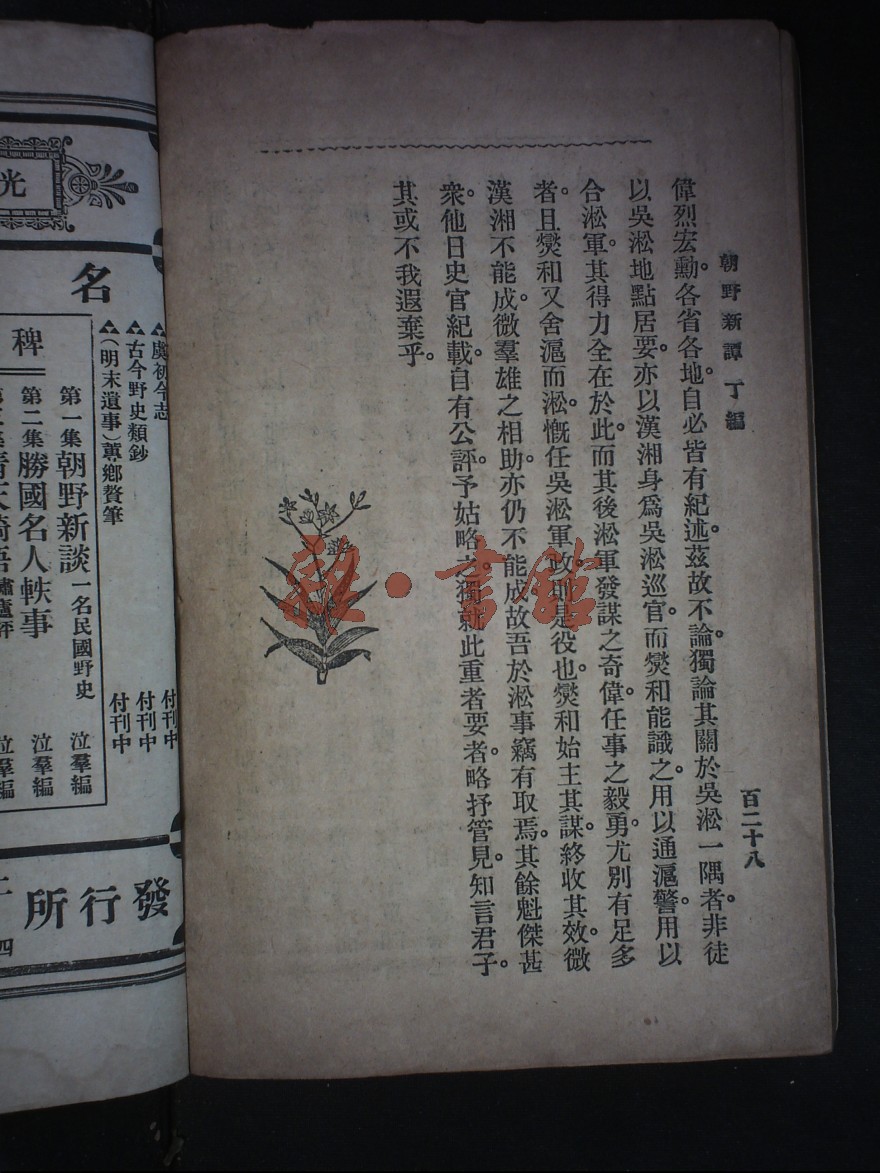 朝野新譚 丁編
百二十八
偉烈宏勳。各省各地。自必皆有紀述。茲故不論。獨論其關於吳淞一隅者。非徒
以吳淞地點居要。亦以漢湘身爲吳淞巡官。而燮和能識之。用以通滬警。用以
合淞軍。其得力全在於此。而其後淞軍發謀之奇偉。任事之毅勇。尤別有足多
者。且燮和又舍滬而淞。慨任吳淞軍政。則是役也。燮和始主其謀。終收其效。微
漢湘不能成。微羣雄之相助。亦仍不能成。故吾於淞事竊有取焉。其餘魁傑甚
衆。他日史官紀載。自有公評。予姑略之。獨就此重者要者。略抒管見。知言君子。
其或不我遐棄乎。
雜·書館
光
名
虞初今志 付刊中
古今野史類鈔 付刊中
(明末遺事)薰鄉贅筆 付刊中
稗
第一集 朝野新談 一名民國野史 泣羣編
第二集 勝國名人軼事 泣羣編
泣羣編
發行所
四